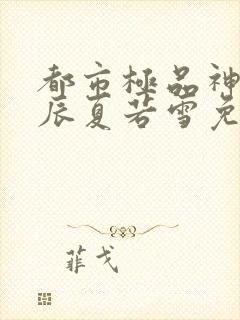 都市極品神
辰夏若雪免
菲戈